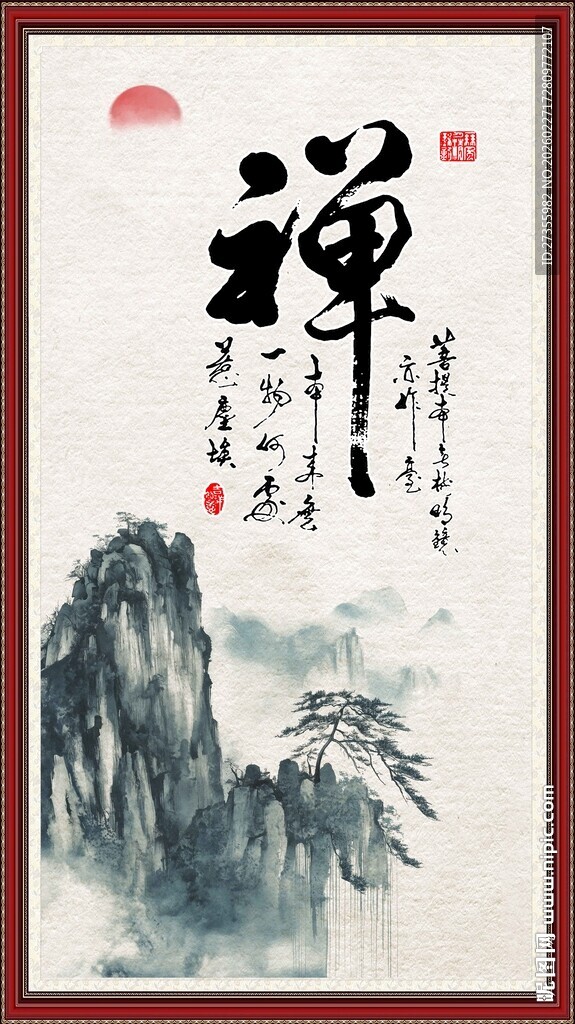 禅
菩提本无树明鏡
亦非臺
本来無
一物何處
惹塵埃
ID:27355982 NO:20260227172809772107
昵图网 www.nipic.com